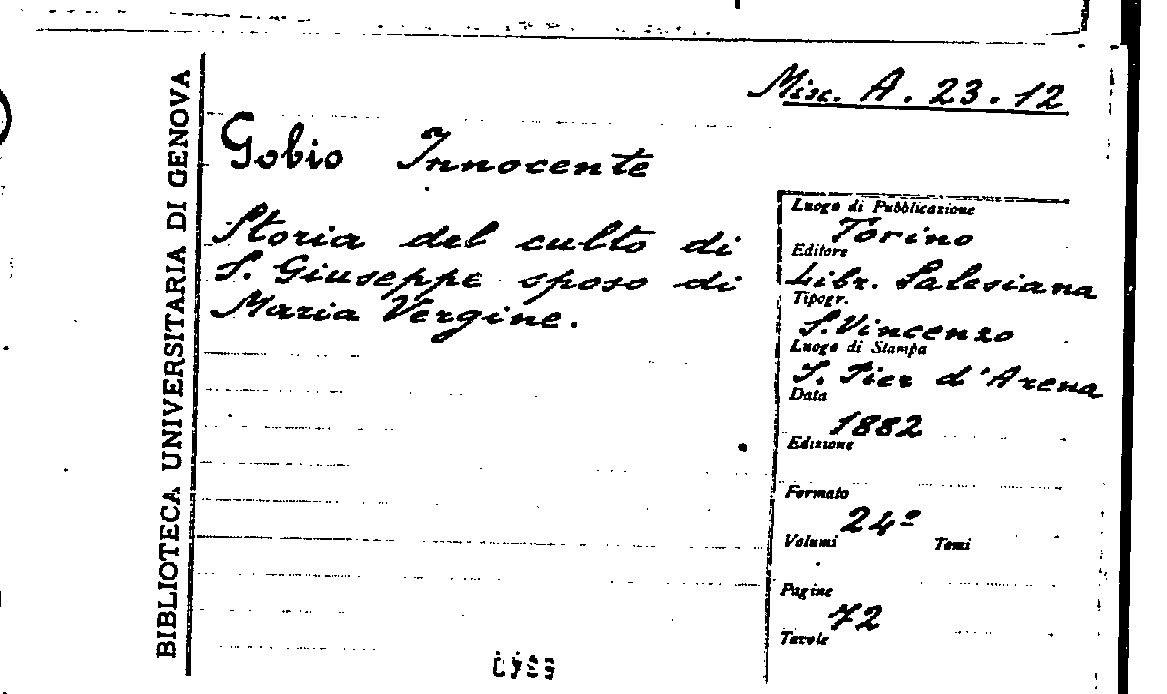 BIBLIOTECA UNIVERSITARIA DI GENOVA
Misc. A. 23.12
Gobio Innocente
Storia del culto di
S. Giuseppe sposo di
Maria Vergine.
Luogo di Pubblicazione
Torino
Editore
Libr. Salesiana
Tipogr.
S. Vincenzo
Luogo di Stampa
S. Pier d'Arena
Data
1882
Edizione
Formato
24º
Volumi Tomi
Pagine
72
Tavole